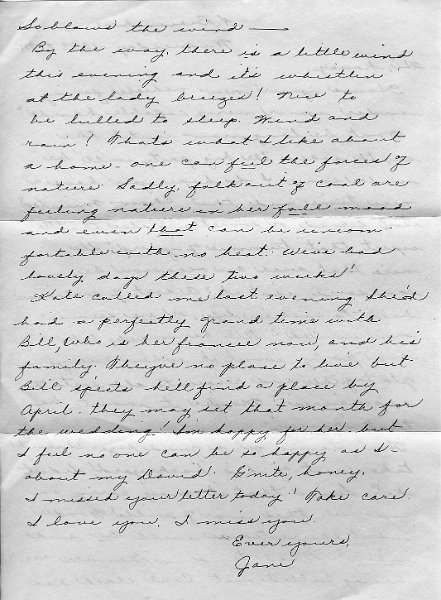 So blows the wind —
By the way, there is a little wind
this evening and it's whistlin'
at the lady breezes! Nice to
be lulled to sleep. Wind and
rain! Thats what I like about
a home - one can feel the forces of
nature. Sadly, folk out of coal are
feeling nature in her full mood
and even that can be uncom-
fortable with no heat. We've had
lously days these two weeks!
Kate called me last evening. She'd
had a perfectly grand time with
Bill, who is her fiancee now, and his
family. Theyve no place to live but
Bill 'spects he'll find a place by
April. They may set that month for
the wedding! I'm happy for her, but
I feel no one can be so happy as I -
about my David. G'nite, honey.
I missed your letter today! Take care.
I love you. I miss you.
Ever yours,
Jane